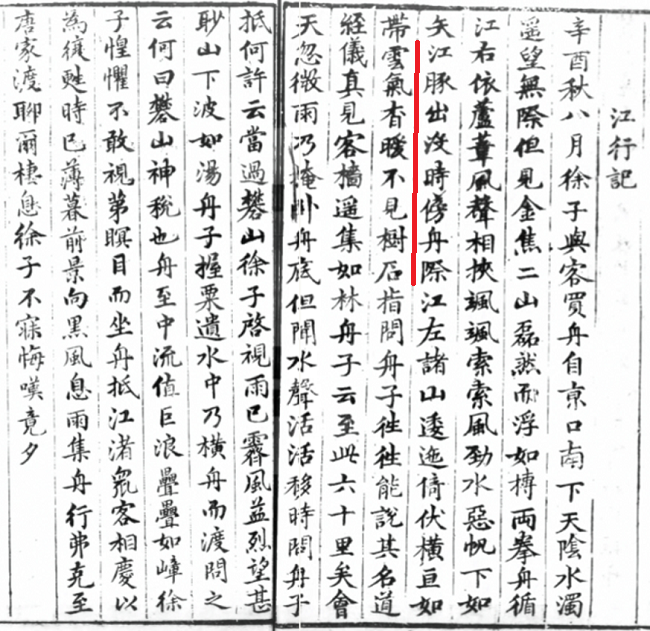 江行記
辛酉秋八月徐子與客買舟自京口南下天陰水濁
遥望無際但見金焦二山磊然而浮如摶兩拳舟循
江右依蘆葦風聲相挾颯颯索索風勁水惡帆下如
矢江豚出沒時傍舟際江左諸山逶迤倚伏橫亘如
帶雲氣杳曖不見樹石指問舟子徃徃能說其名道
經儀真見客檣遥集如林舟子云至此六十里矣會
天忽微雨乃掩卧舟底但聞水聲活活移時問舟子
抵何許云當過礬山徐子啓視雨已霽風益烈望甚
眇山下波如湯舟子握粟遺水中乃橫舟而渡問之
云何曰礬山神稅也舟至中流值巨浪疊疊如嶂徐
子惶懼不敢視第瞑目而坐舟抵江渚衆客相慶以
為復甦時已薄暮前景向黑風息雨集舟行弗克至
唐家渡聊爾棲息徐子不寐悔嘆竟夕